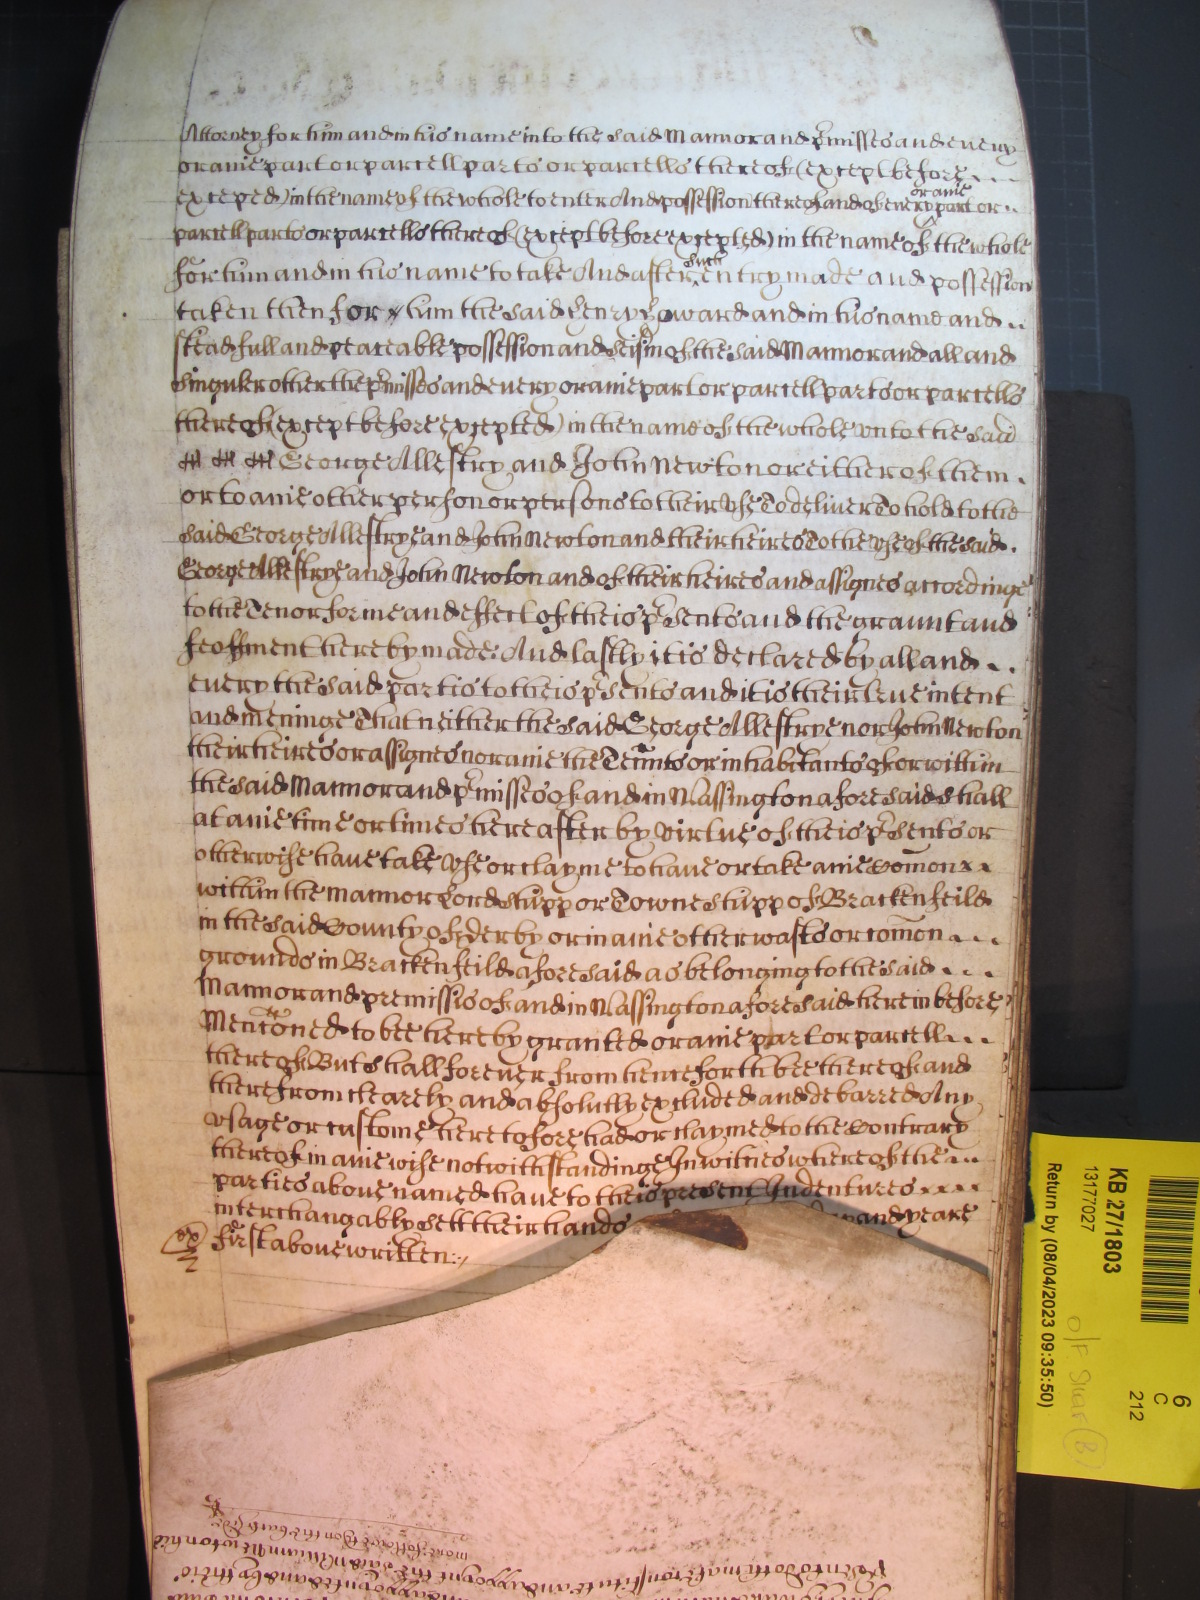 Attorney for him and in his name into the said Mannor and p̄misses and every
or anie part or parcell parts or parcells thereof (except before
excepted) in the name of the whole to enter And possession thereof and of every or anie part or
parcell parts or parcells thereof (except before excepted) in the name of the whole
for him and in his name to take And after such entry made and possession
taken then for him the said Henry Howard and in his name and
stead full and peaceable possession and seisin of the said Mannor and all and
singuler other the p̄misses and every or anie part or parcell parts or parcells
thereof (except before excepted) in the name of the whole vnto the said
George Allestry and John Newton or either of them
or to anie other person or persons to their vse To deliver To hold to the
said George Allestrye and John Newton and their heires To the vse of the said
George Allestrye and John Newton and of their heires and assignes accordinge
to the Tenor forme and effect of theis p̄sents and the graunt and
feoffment hereby made. And lastly it is declared by all and
every the said partis to theis p̄sents and it is their true intent
and meninge That neither the said George Allestrye nor John Newton
their heires or assignes nor anie the Tennts or inhabitants of or within
the said Mannor and p̄misses of and in Wassington aforesaid shall
at anie time or times hereafter by virtue of theis p̄sents or
otherwise have take vse or clayme to have or take anie Com̄on
within the mannor Lordshipp or Towneshipp of Brackenfeild
in the said County of Derby or in anie other wasts or com̄on
grounds in Brackenfeild aforesaid as belonging to the said
Mannor and premissis of and in Wassington aforesaid herein before
Menc̄oned to bee hereby granted or anie part or parcell
thereof But shall forever from hence forth bee thereof and
therefrom clearely and absolutly excluded and debarred Any
vsage or custome heretofore had or claymed to the Contrary
thereof in anie wise notwithstandinge In witnes whereof the
parties above named have to theis present Indentures
interchangably sett their hands and yeare
first above written
KB 27/1803
13177027
Return by (08/04/2023 09:35:50)
6
C
212